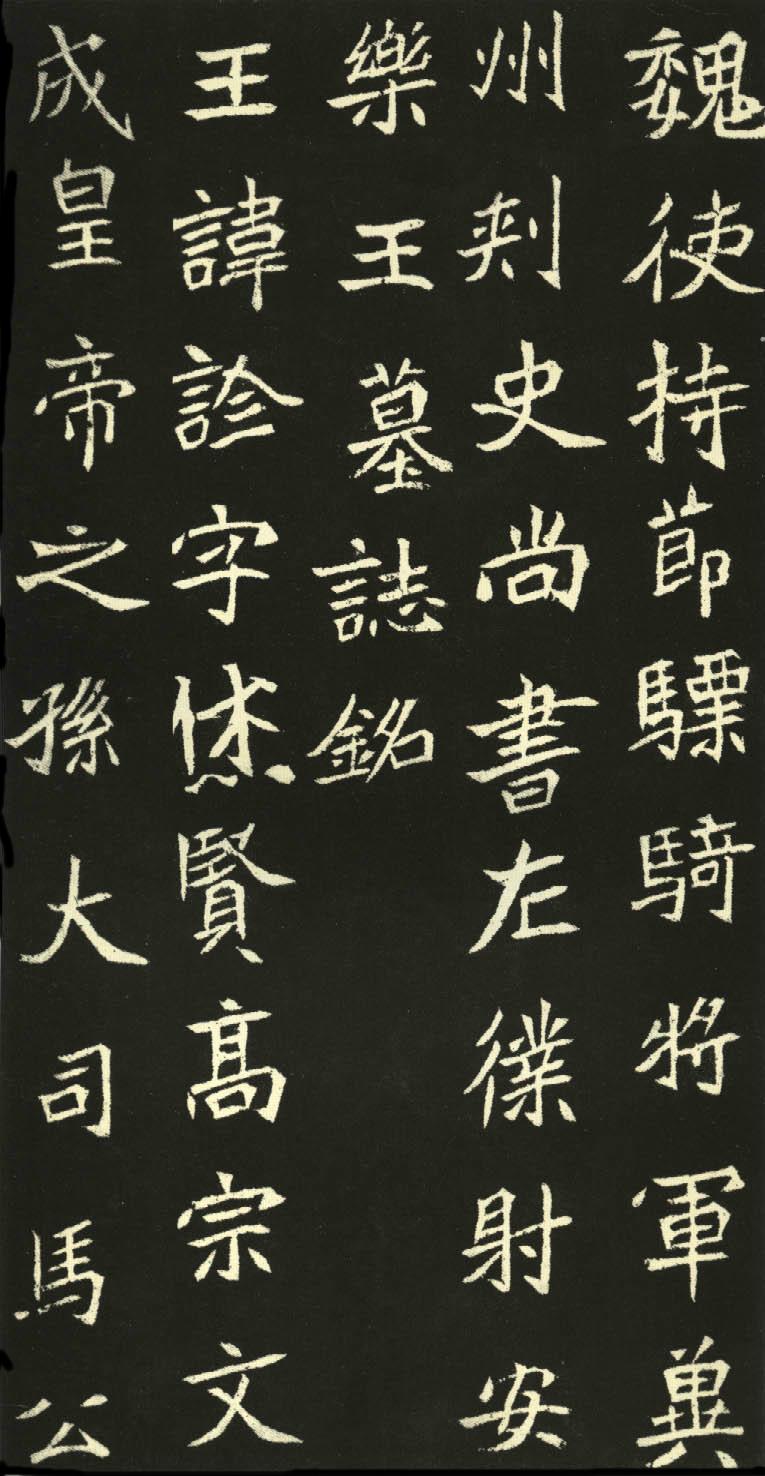 魏使持節驃騎將軍冀
州刺史尚書左僕射安
樂王墓誌銘
王諱詮字休賢高宗文
成皇帝之孫大司馬公